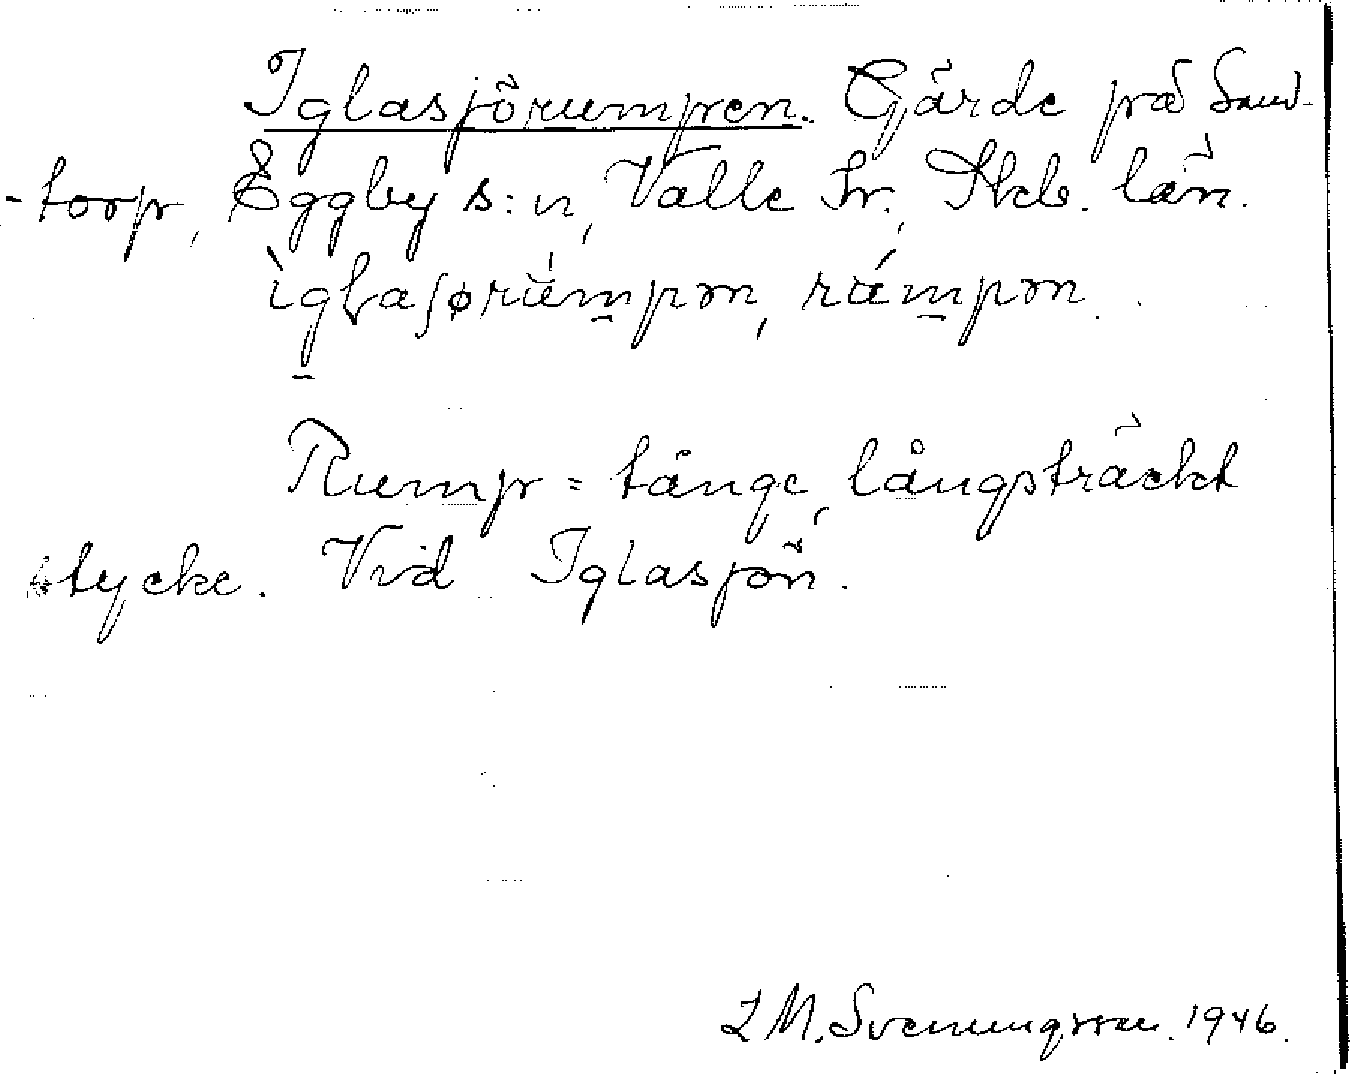 Iglasjörumpen. Gärde på Sand-
-torp, Eggby s:n, Valle hr., Skb. län.
Rump = tånge, långsträckt
stycke. Vid Iglasjön.
L M. Svenungsson. 1946.